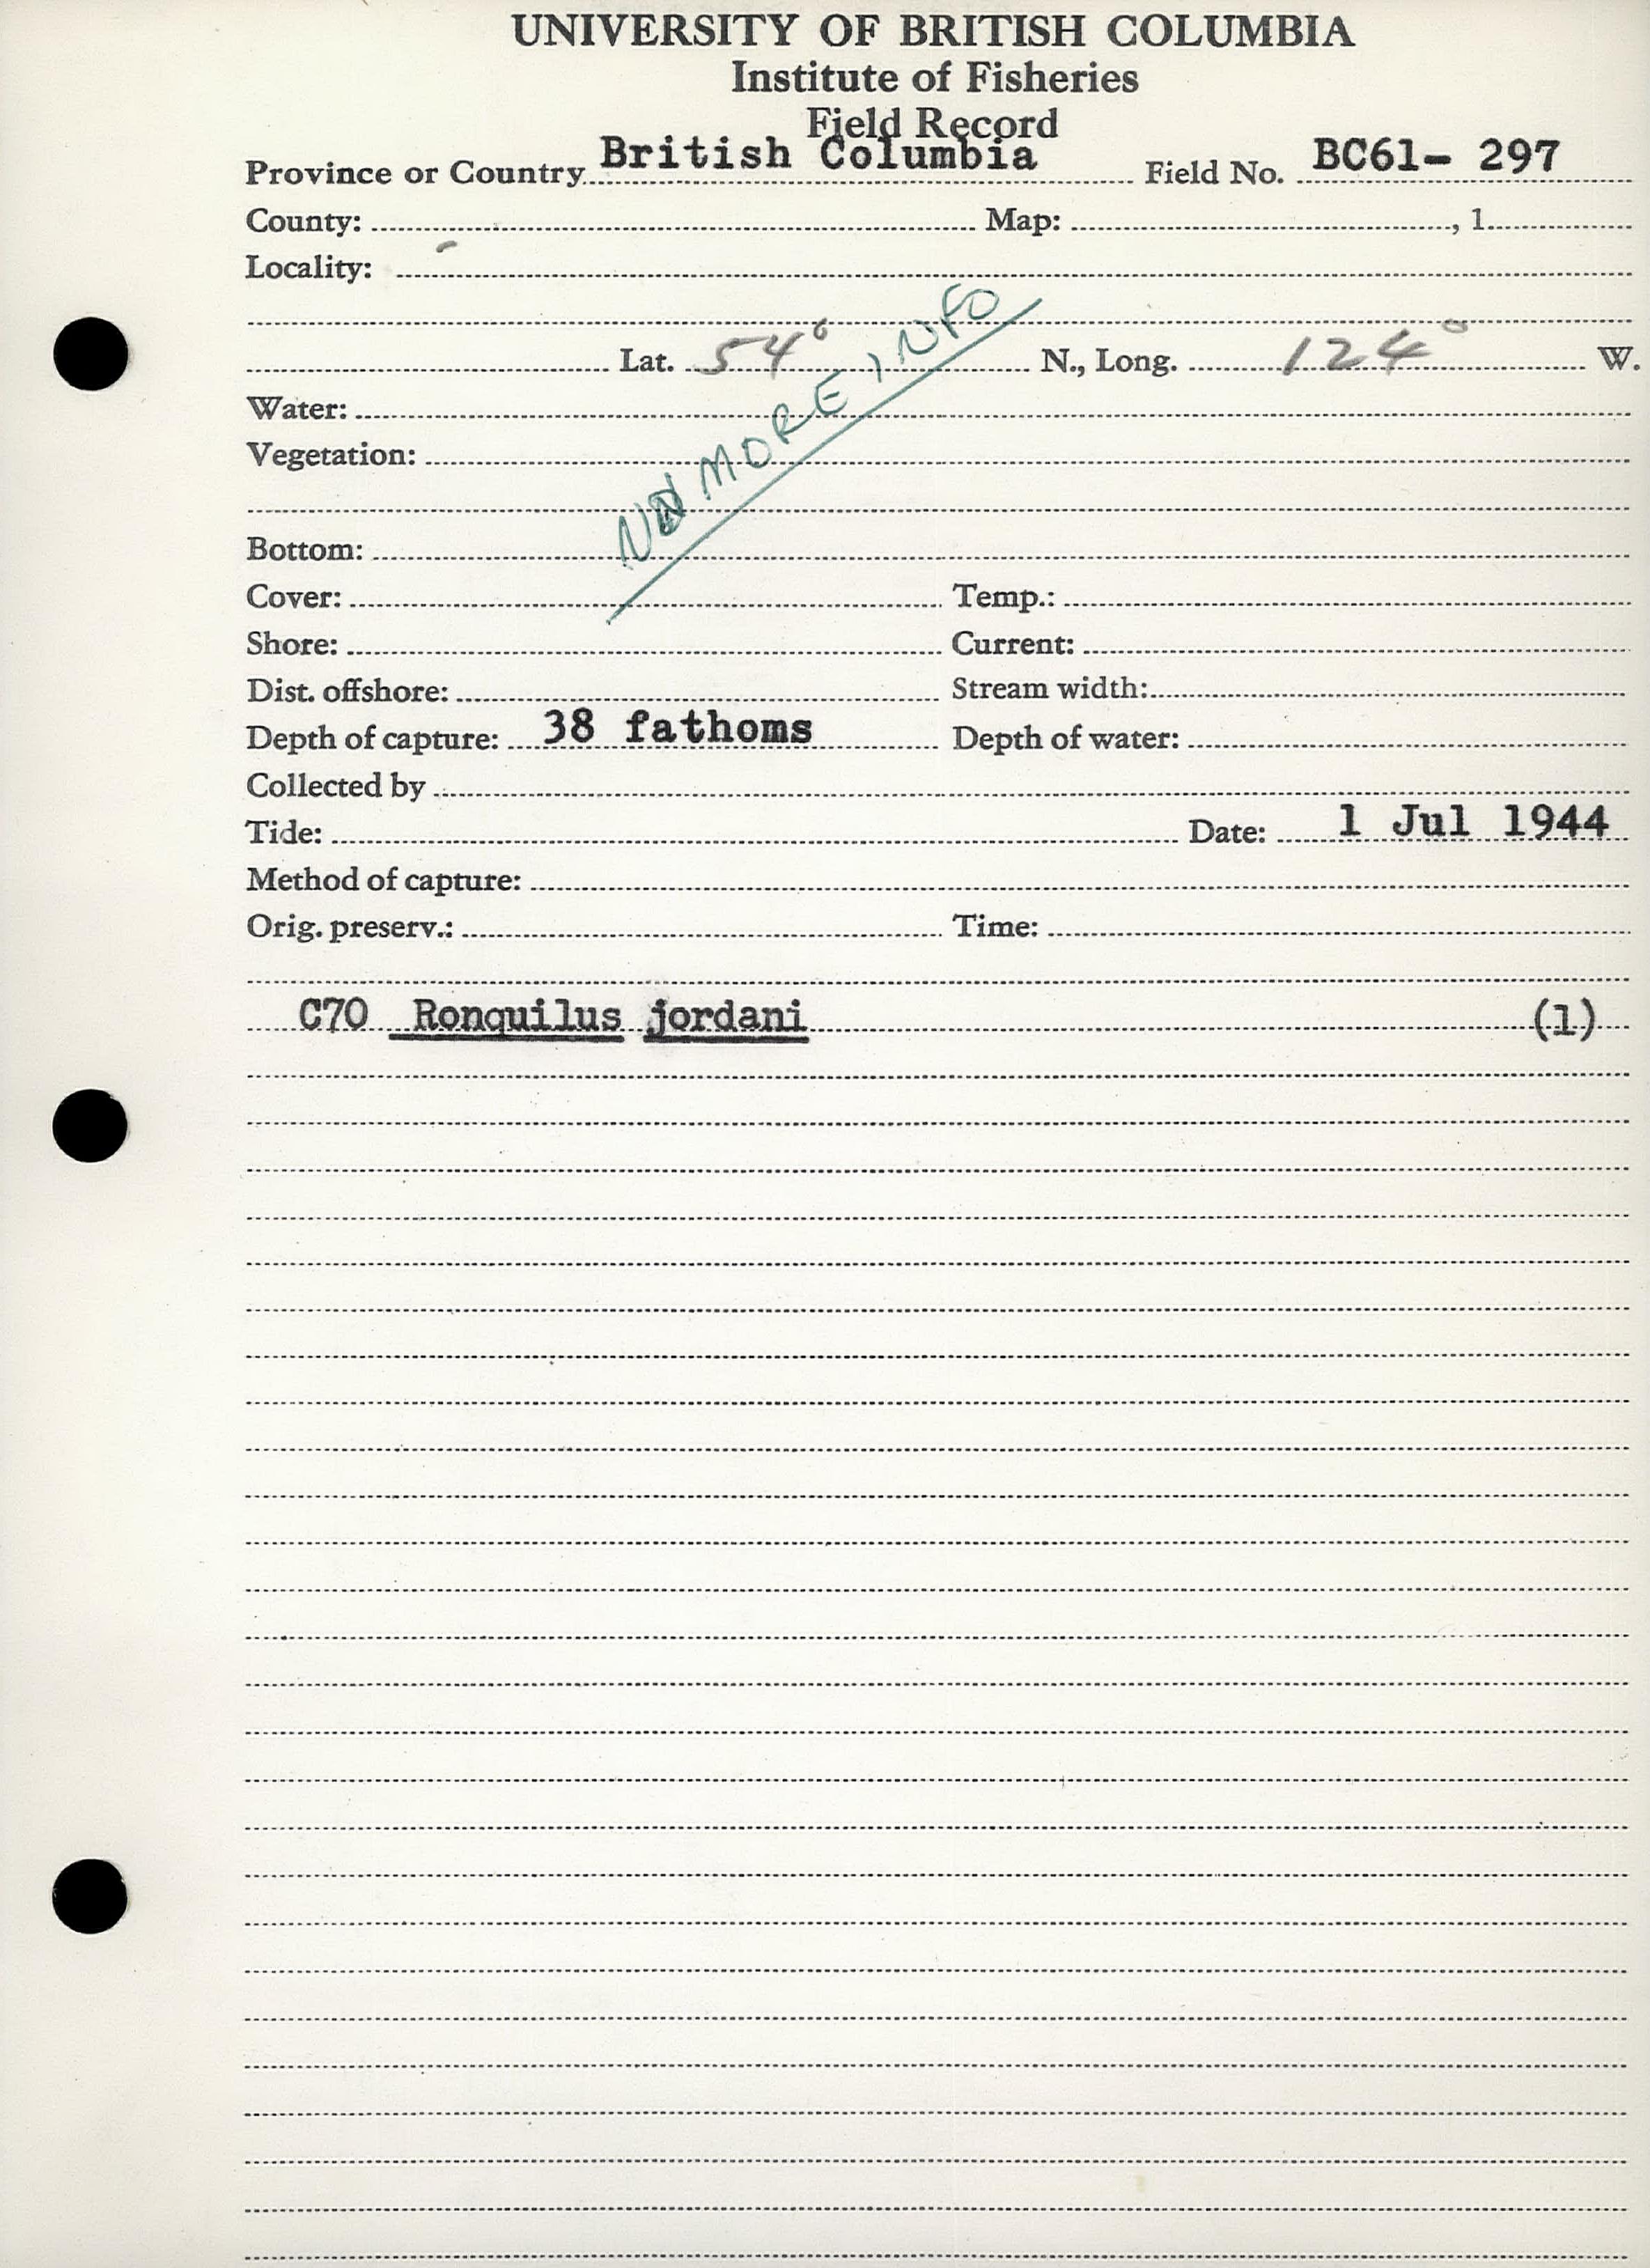 UNIVERSITY OF BRITISH COLUMBIA
Institute of Fisheries
Field Record
Province or Country British Columbia Field No. BC61- 297
County: Map: , 1
Locality:
Lat. 54° N., Long. 124° W.
Water:
Vegetation:
NO MORE INFO
Bottom:
Cover: Temp.:
Shore: Current:
Dist. offshore: Stream width:
Depth of capture: 38 fathoms Depth of water:
Collected by
Tide: Date: 1 Jul 1944
Method of capture:
Orig. preserv.: Time:
C70 Ronquilus jordani (1)